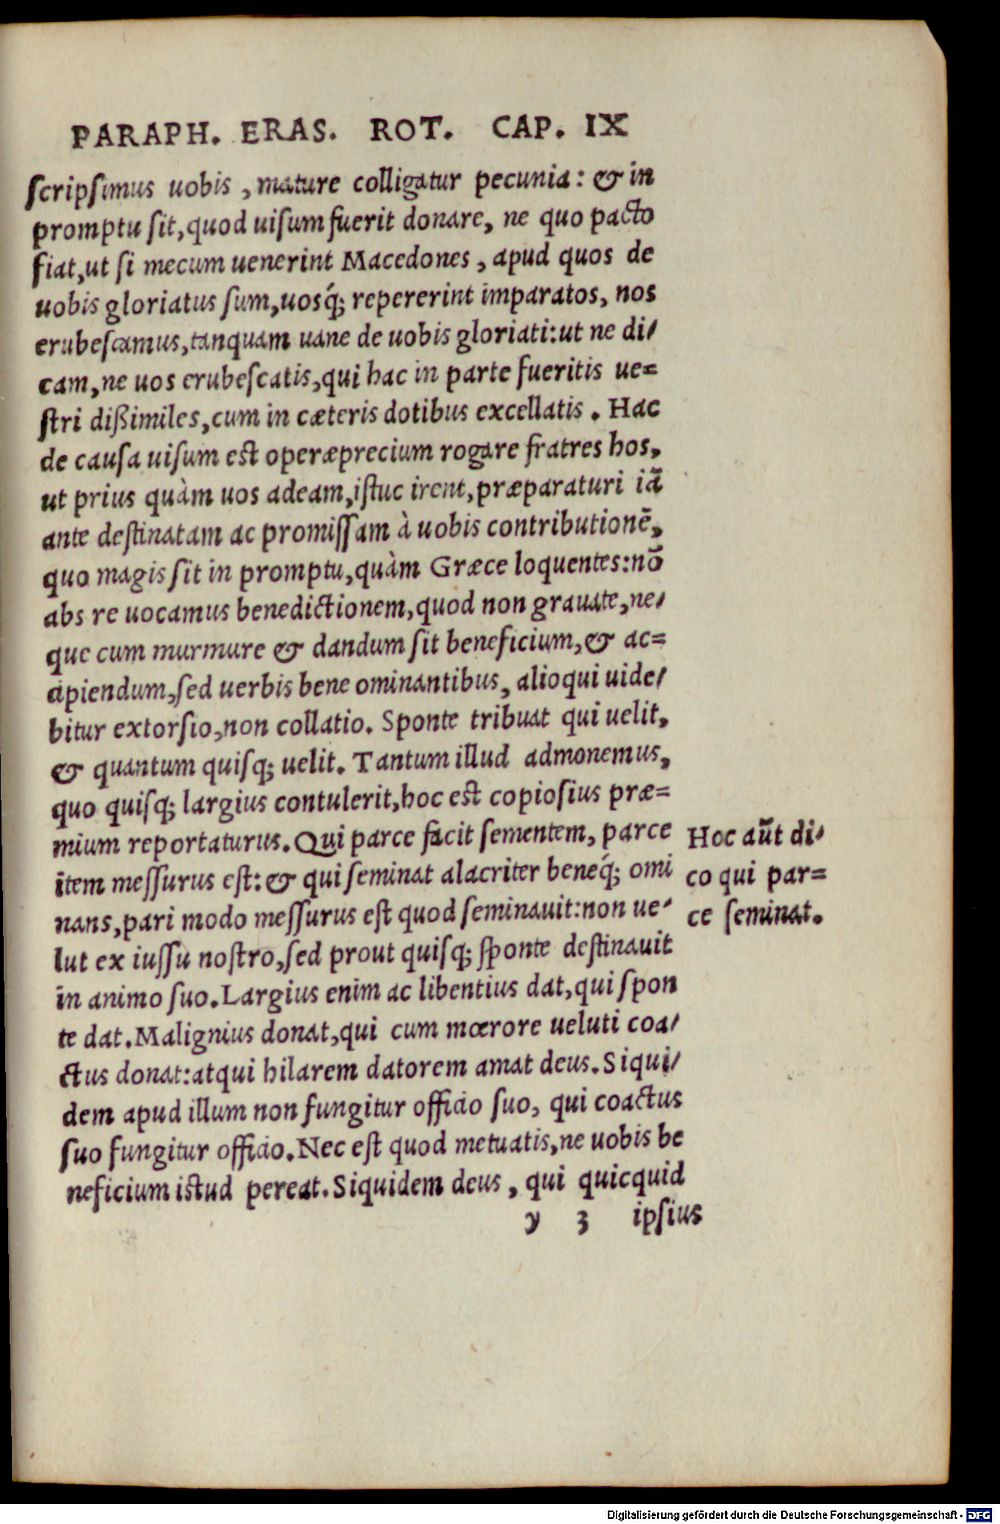 PARAPH. ERAS. ROT. CAP. IX
scripsimus uobis , mature colligatur pecunia: & in
promptu sit, quod uisum fuerit donare, ne quo pacto
fiat, ut si mecum uenerint Macedones , apud quos de
uobis gloriatus sum, uosq́; repererint imparatos, nos
erubescamus, tanquam uane de uobis gloriati: ut ne di/
cam, ne uos erubescatis, qui hac in parte fueritis ue=
stri dißimiles, cum in cæteris dotibus excellatis . Hac
de causa uisum est operæprecium rogare fratres hos,
ut prius quàm uos adeam, istuc irent, præparaturi iā
ante destinatam ac promissam à uobis contributionē,
quo magis sit in promptu, quàm Græce loquentes: nō
abs re uocamus benedictionem, quod non grauate, ne/
que cum murmure & dandum sit beneficium, & ac=
cipiendum, sed uerbis bene ominantibus, alioqui uide/
bitur extorsio, non collatio. Sponte tribuat qui uelit,
& quantum quisq; uelit. Tantum illud admonemus,
quo quisq; largius contulerit, hoc est copiosius præ=
mium reportaturus. Qui parce facit sementem, parce
item messurus est: & qui seminat alacriter beneq́; omi
nans, pari modo messurus est quod seminauit: non ue/
lut ex iussu nostro, sed prout quisq; sponte destinauit
in animo suo. Largius enim ac libentius dat, qui spon
te dat. Malignius donat, qui cum mœrore ueluti coa/
ctus donat: atqui hilarem datorem amat deus. Siqui/
dem apud illum non fungitur officio suo, qui coactus
suo fungitur officio. Nec est quod metuatis, ne uobis be
neficium istud pereat. Siquidem deus , qui quicquid
y 3 ipsius
Hoc aūt di/
co qui par=
ce seminat.
Digitalisierung gefördert durch die Deutsche Forschungsgemeinschaft - DFG